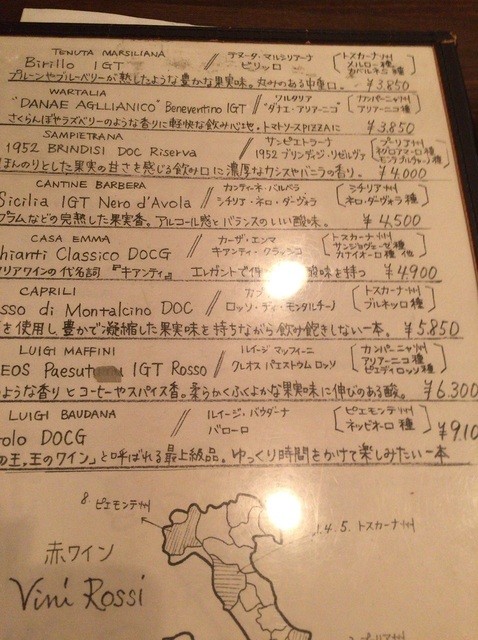 TENUTA MARSILIANA / テヌータ・マルシリアーナ [トスカーナ州
Birillo IGT / ビリッロ メルロー種
カベルネ種]
プルーンやブルーベリーが熟したような豊かな果実味。丸みのある中重口。 ¥3,850
WARTALIA / ワルタリア [カンパーニャ州
"DANAE AGLLIANICO" Beneventino IGT / "ダナエ・アリアーニコ" アリアーニコ種]
さくらんぼやラズベリーのような香りに軽快な飲み心地。トマトソースPIZZAに ¥3,850
SAMPIETRANA / サンピエトラーナ [プーリア州
1952 BRINDISI DOC Riserva / 1952 ブリンディジ・リゼルヴァ ネグロアマーロ種
モンテプルチャーノ種]
ほんのりとした果実の甘さを感じる飲み口に濃厚なカシスやバニラの香り。 ¥4,000
CANTINE BARBERA / カンティーネ・バルベラ [シチリア州
Sicilia IGT Nero d'Avola / シチリア・ネロ・ダーヴォラ ネロ・ダヴォラ種]
プラムなどの完熟した果実香。アルコール感とバランスのいい酸味。 ¥4,500
CASA EMMA / カーザ・エンマ [トスカーナ州
hianti Classico DOCG / キアンティ・クラッシコ サンジョヴェーゼ種
カナイオーロ種 他]
タリアワインの代名詞『キアンティ』 エレガントで 酸味を持つ ¥4,900
CAPRILI / カプ [トスカーナ州
sso di Montalcino DOC / ロッソ・ディ・モンタルチーノ ブルネッロ種]
を使用し、豊かで凝縮した果実味を持ちながら飲み飽きしない一本。 ¥5,850
LUIGI MAFFINI / ルイージ マッフィーニ [カンパーニャ州
EOS Paesu IGT Rosso / クレオス パエストゥム ロッソ アリアーニコ種
ピエディロッソ種]
ような香りとコーヒーやスパイス香。柔らかくふくよかな果実味に伸びのある酸。 ¥6,300
LUIGI BAUDANA / ルイージ・バウダーナ [ピエモンテ州
olo DOCG / バローロ ネッビオーロ種] ¥9,10
の王、王のワイン」と呼ばれる最上級品。ゆっくり時間をかけて楽しみたい一本
8 ピエモンテ州
1.4.5. トスカーナ州
赤ワイン
Vini Rossi
プーリア州